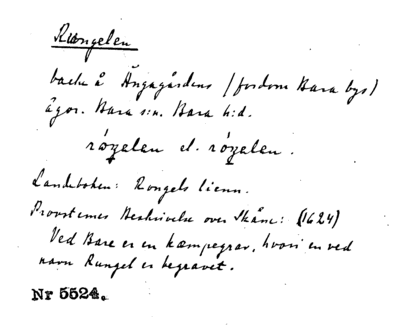 Rungelen
backe å Ängagårdens (fordom Bara bys)
ägor. Bara s:n. Bara h:d.
róŋelen el. róŋelen.
Landeboken: Rongels lienn.
Provsternes Beskrivelse over Skåne: (1624)
Ved Bare er en kæmpegrav, hvori en ved
navn Rungel er begravet.
Nr 5524.